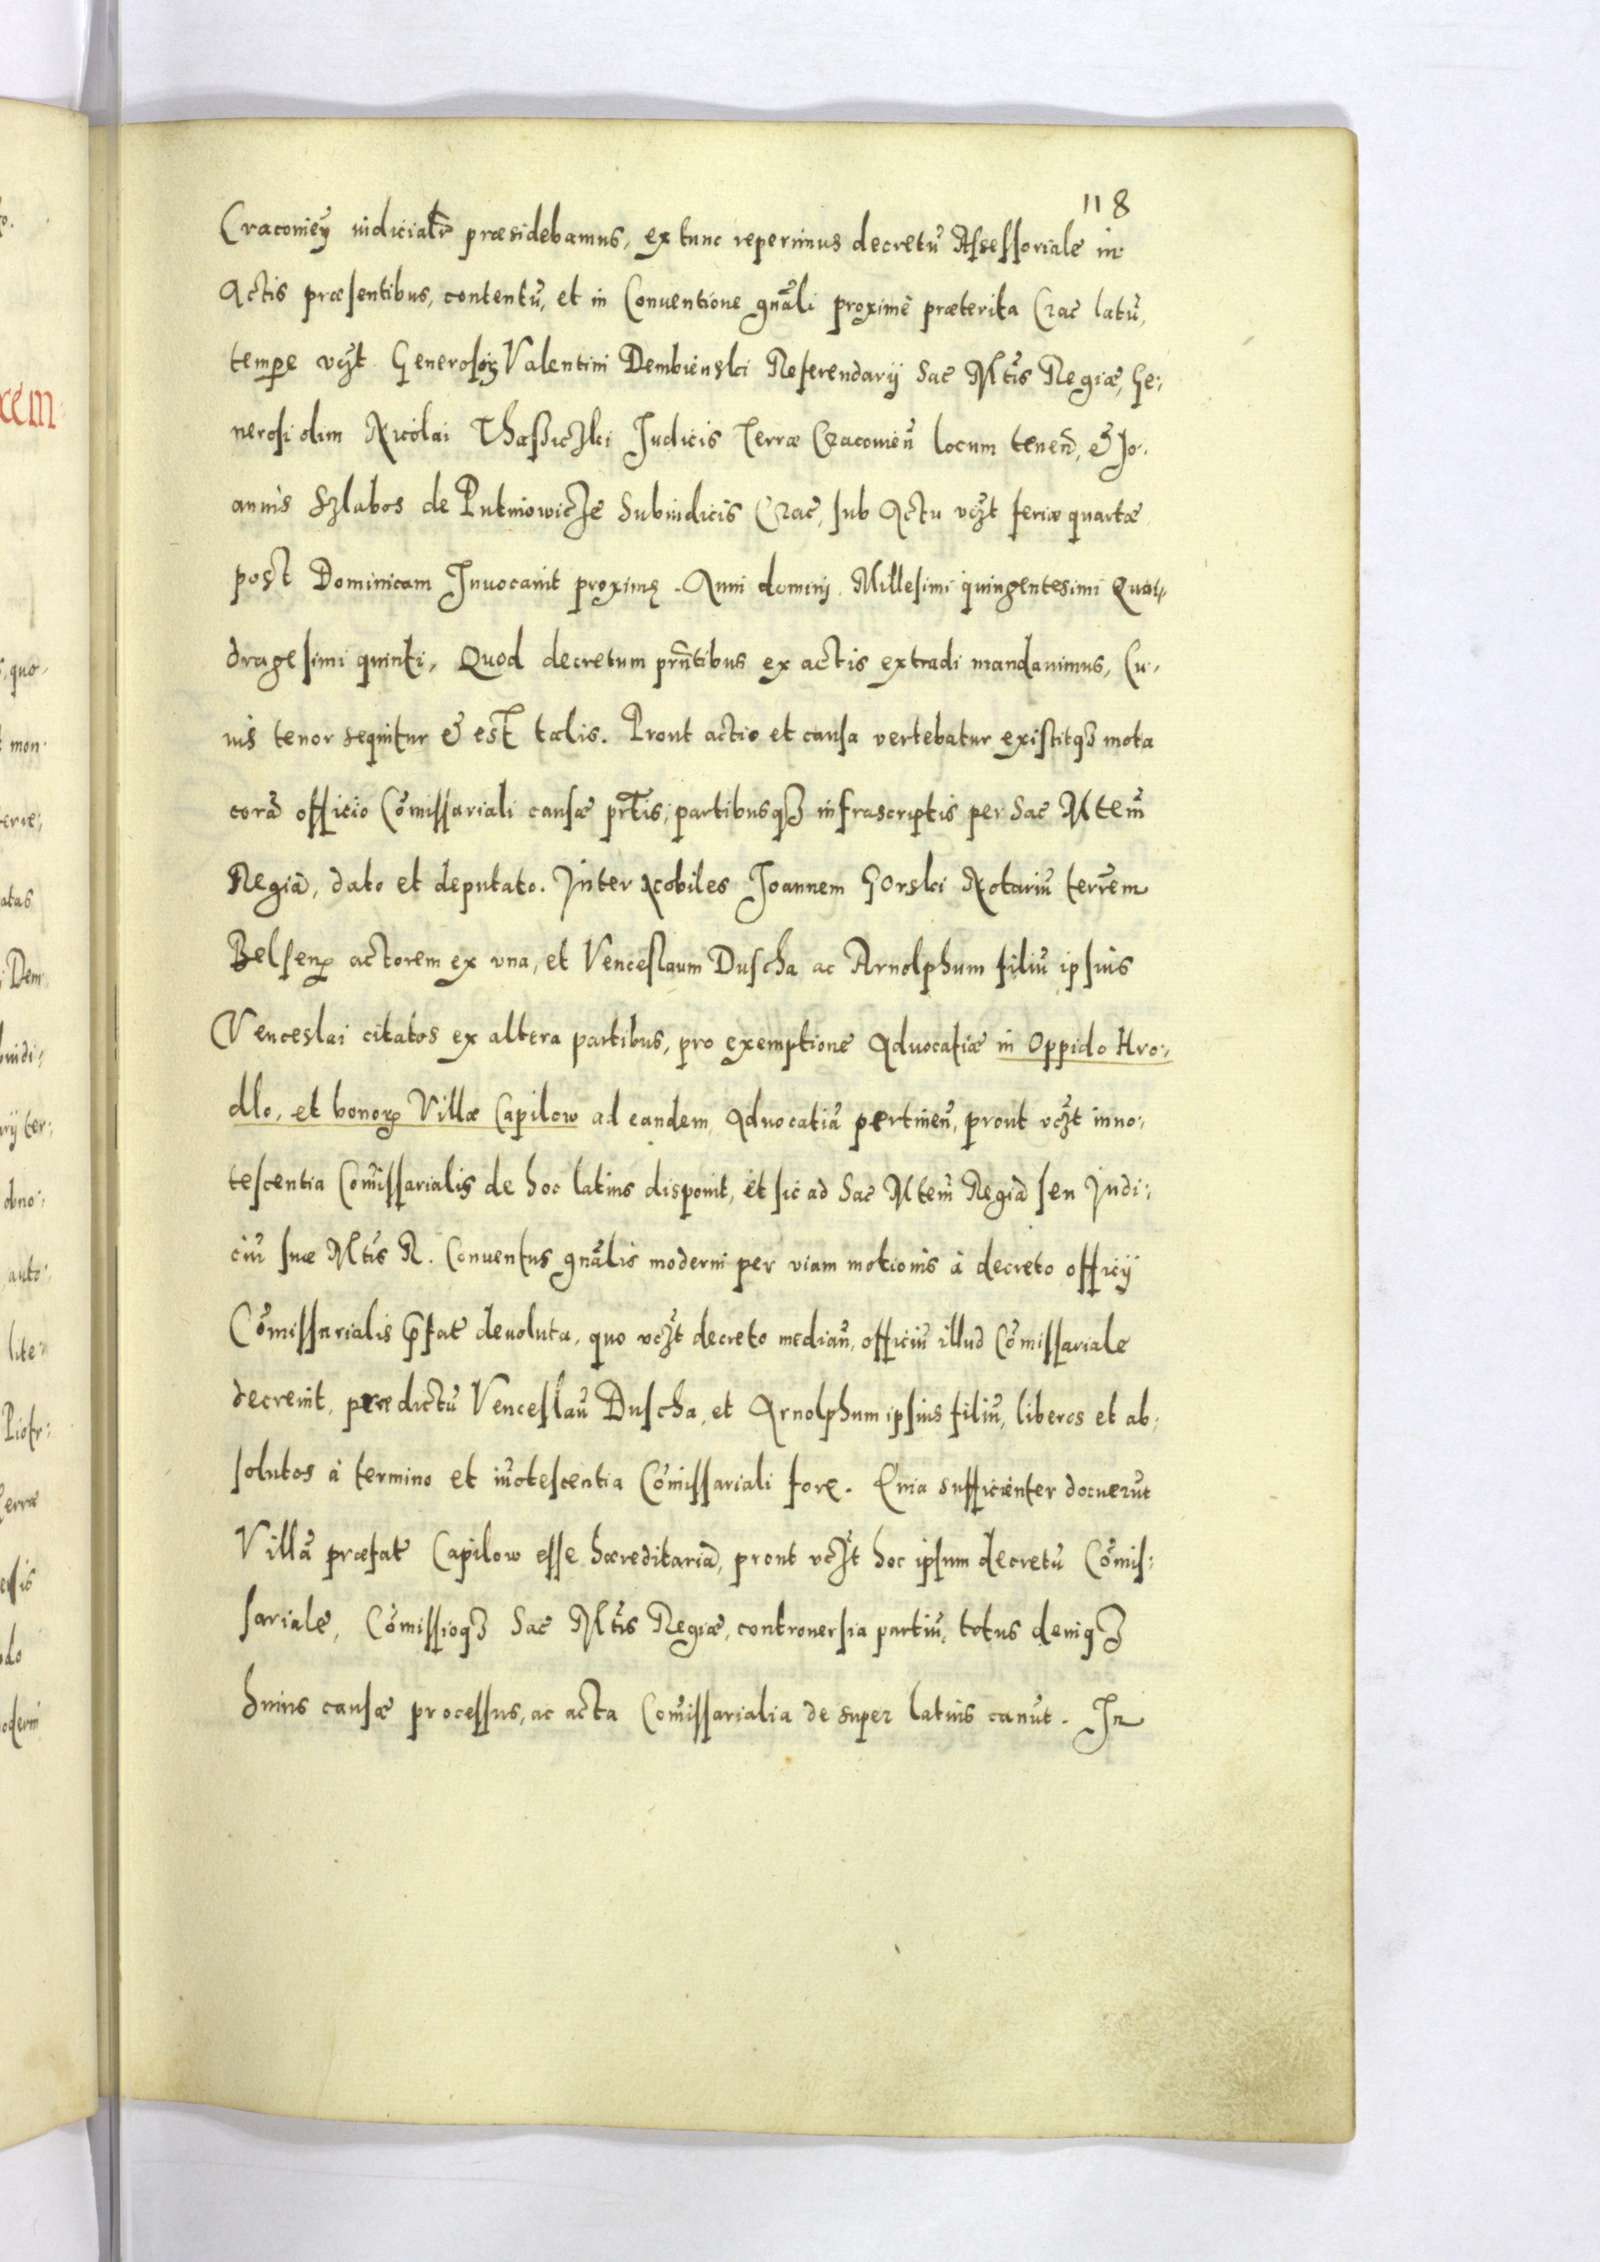 118
Cracouieñ iudicialr̃ præsidebamus, ex tunc reperimus decretũ Assessoriale in
Actis præsentibus, contentũ, et in Conuentione gñali proximè præterita Crac̃ latũ,
tempe vc̃zt Generosoꝝ Valentini Dembienski Referendarij Sac̃ Mt̃is Regiæ, Ge:
nerosi olim Nicolai Thaßiczki Judicis Terræ Cracouieñ locum teneñ, & Jo:
annis Szlabos de Putniowicze Subiudicis Crac̃, sub Actu vc̃zt feriæ quartæ
post Dominicam Inuocauit proximę. Anni domini Millesimi quingentesimi Qua:
dragesimi quinti, Quod decretum prñtibus ex actis extradi mandauimus, Cu:
ius tenor sequitur & est talis. Prout actio et causa vertebatur existitqꝫ mota
corã officio Cõmissariali causæ pr̃tis, partibusqꝫ infrascriptis per Sac̃ Mtem̃
Regiã, dato et deputato. Inter Nobiles Joannem Gorski Notariũ terrẽm
Belseñ actorem ex vna, et Venceslaum Duscha ac Arnolphum filiũ ipsius
Venceslai citatos ex altera partibus, pro exemptione Aduocatiæ in Oppido Hro:
dlo, et bonoꝝ Villæ Capilow ad eandem Aduocatiã pertineñ, prout vc̃zt inno:
tescentia Com̃issarialis de hoc latius disponit, et sic ad Sac̃ Mtem̃ Regiã seu Judi:
ciũ suæ Mt̃is R. Conuentus gñalis moderni per viam motionis à decreto officij
Cõmissarialis p̃fat̃ deuoluta, quo vc̃zt decreto mediañ, officiũ illud Cõmissariale
decreuit, prædictũ Venceslaũ Duscha, et Arnolphum ipsius filiũ, liberos et ab:
solutos à termino et iñotescentia Cõmissariali fore. Quia sufficienter docuerũt
Villã præfat̃ Capilow esse hæreditariã, prout vc̃zt hoc ipsum decretũ Cõmis:
sariale, Cõmissioqꝫ Sac̃ Mt̃is Regiæ, controuersia partiũ, totus deniqꝫ
huius causæ processus, ac acta Com̃issarialia de super latius canũt. In